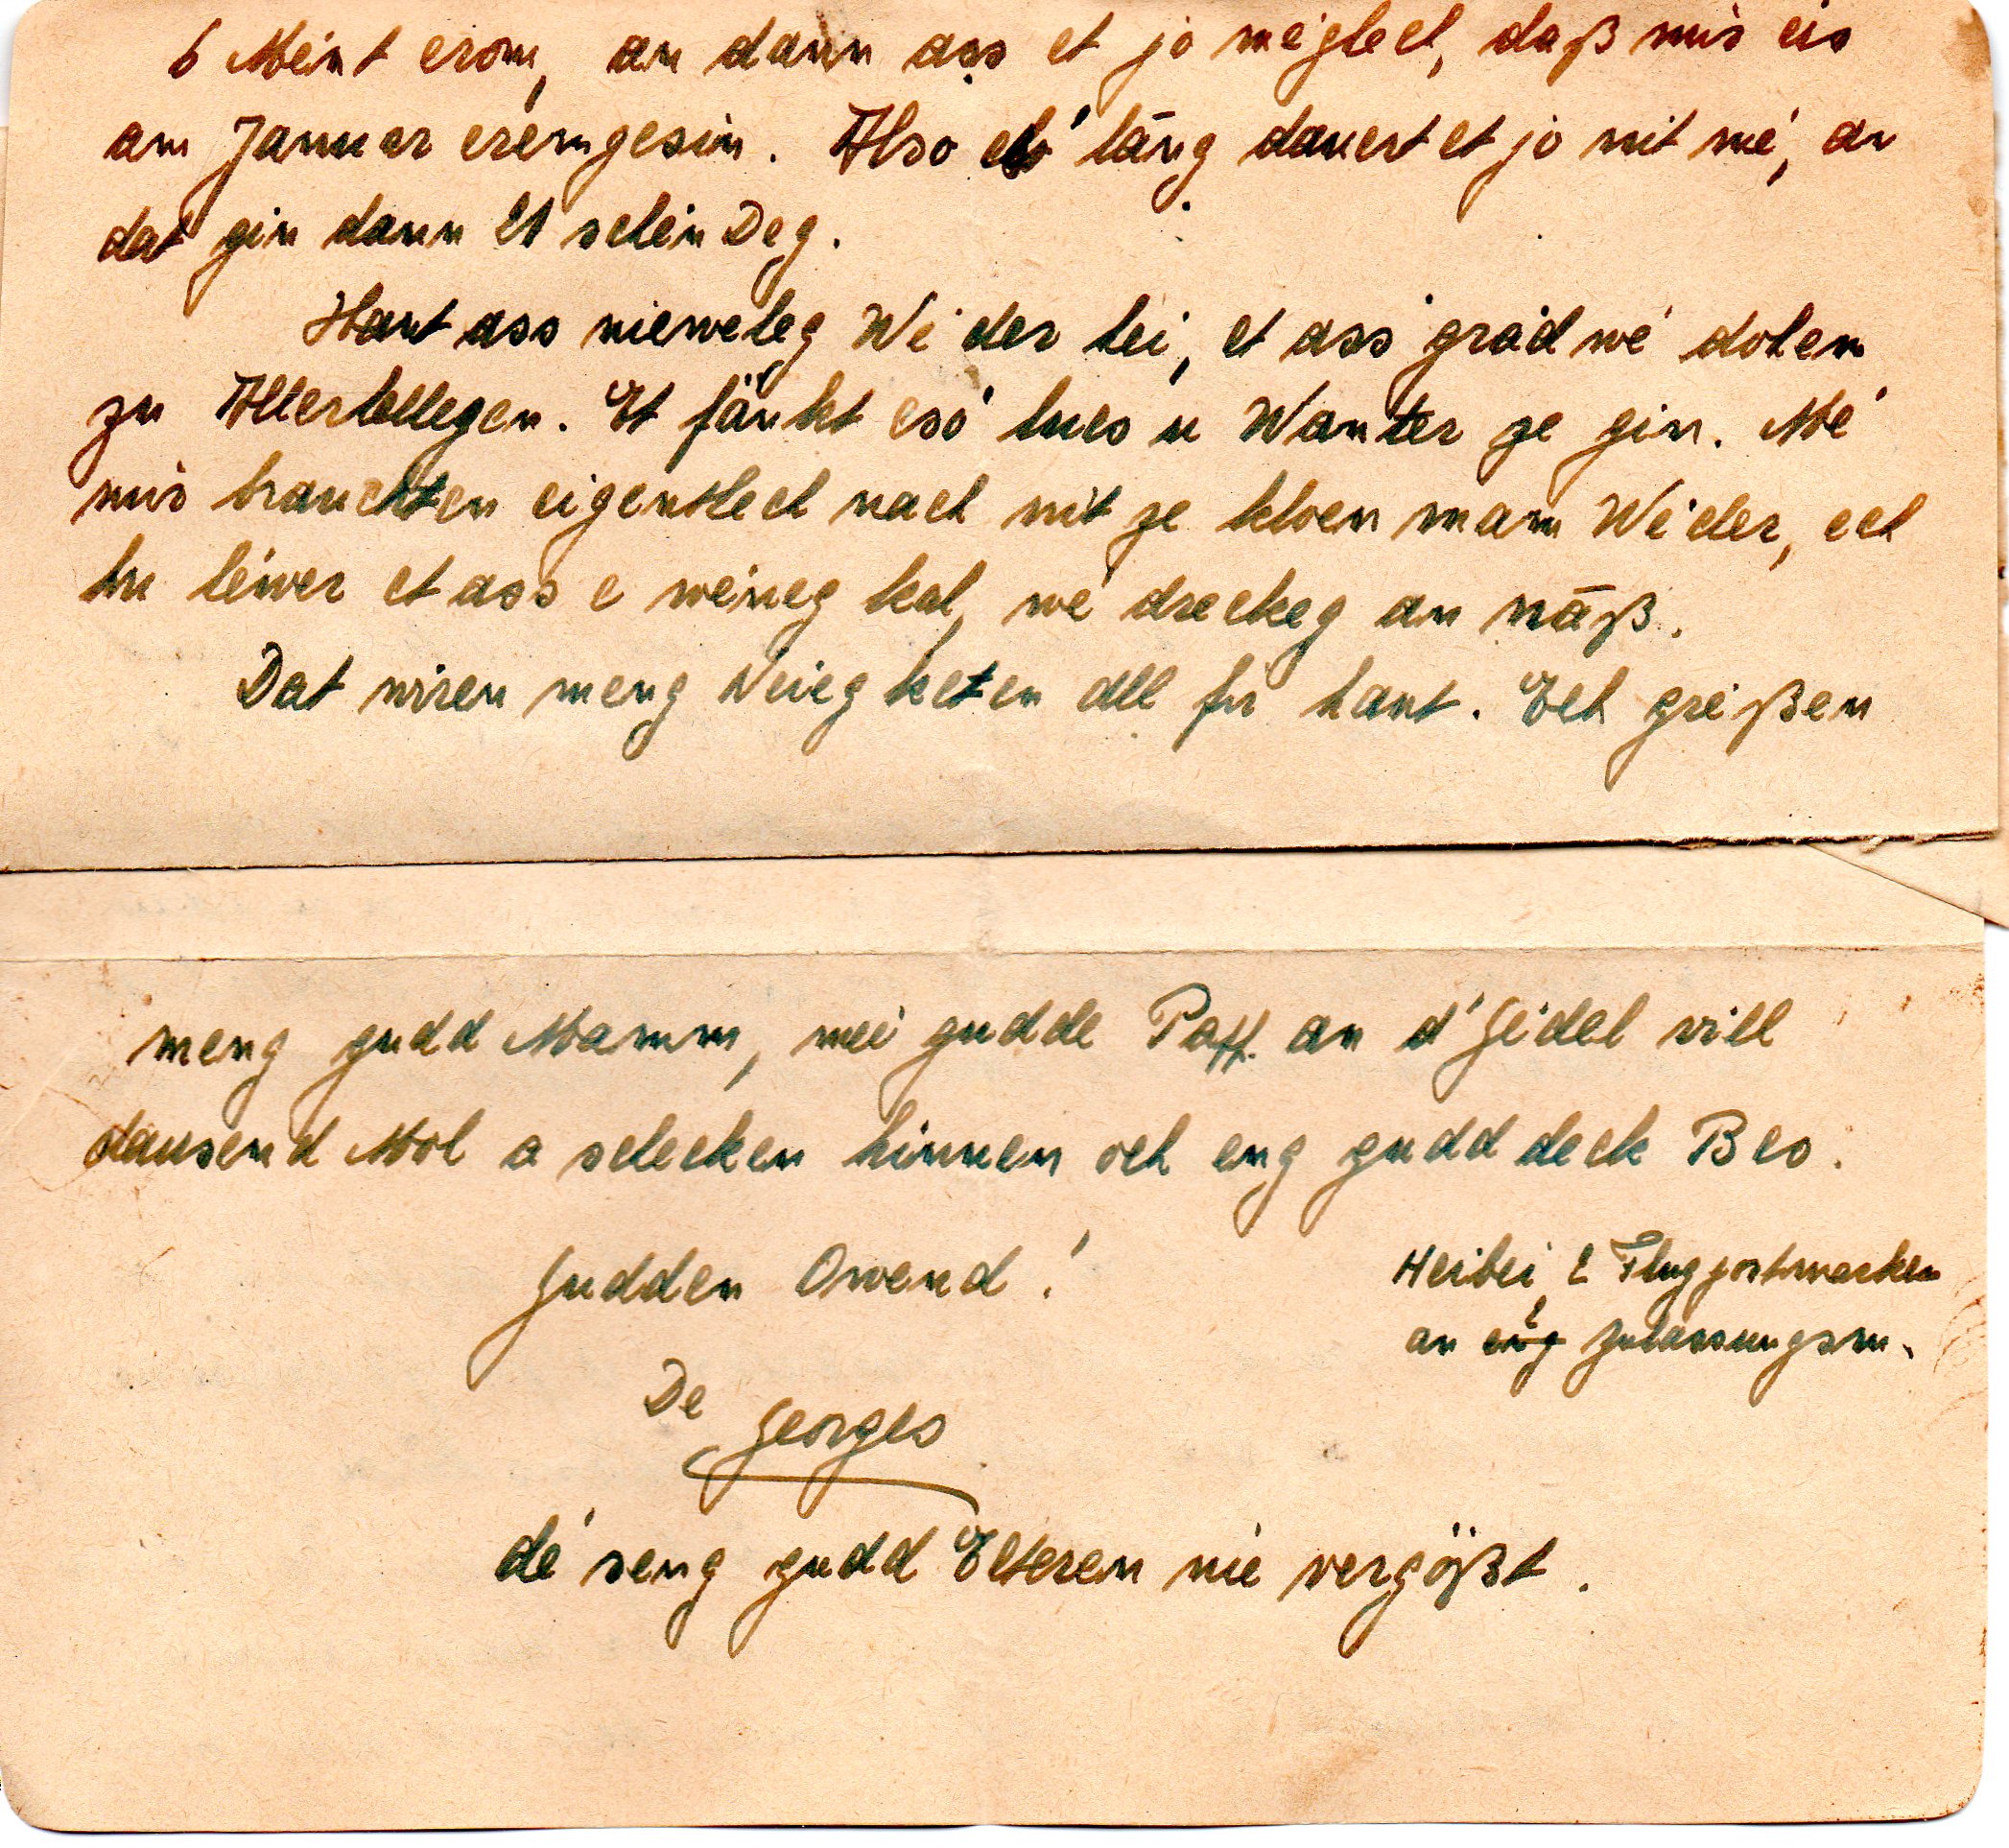 6 Méint erom, an dann ass et jo méglech, daß mir eis
am Januar erëmgesin. Also esó läng dauert et jo nit mé, an
dat gin dann 21 schéin Deg.
Haut ass nieweleg Wé'der hei, et ass grád wé dohem
zu Allerhellegen. Et fänkt esó lues u Wanter ze gin. Mé
mir brauchten eigentlech nach nit ze kloen mam Wé'der, ech
hu léiwer et ass e wéineg kal, wé dreckeg an näß.
Dat wiren meng Neiegketen all fir haut. Ech gréißen
meng gudd Mamm, mei gudde Papp. an d'Geidel vill
dausend Mol a schecken hinnen och eng gudd deck Bes.
Gudden Owend!
Heibei 2 Flugpostmarken
an 2 Zulassungsm.
De Georges
dé seng gudd Elteren nie vergößt.